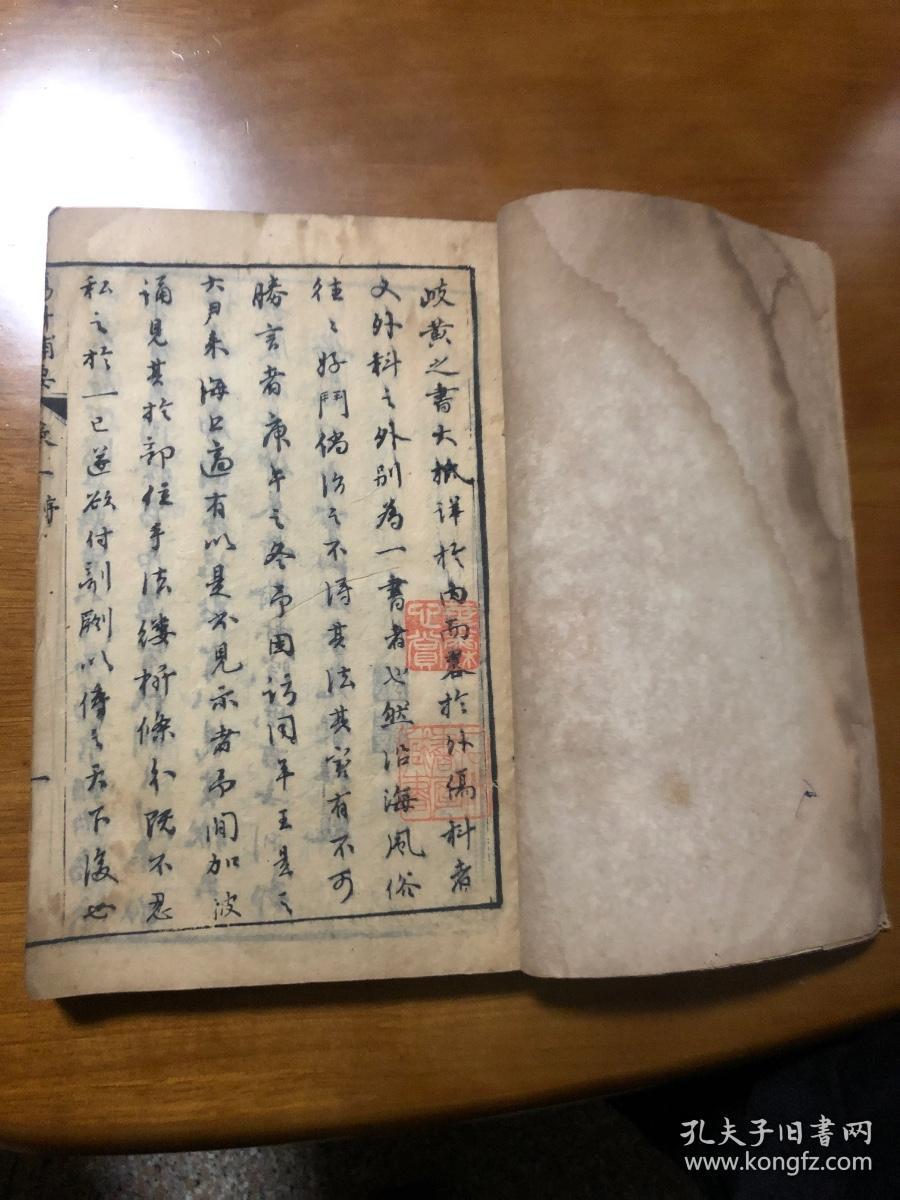 岐黄之書大抵詳於内而畧於外傷科者
又外科之外別為一書者也然沿海風俗
往〻好鬥傷治之不得其法其害有不可
勝言者庚午之冬予因訪同年王星之
大尹来海上適有以是書見示者予間加披
誦見其於部位手法縷析條分既不忍
私之於一已遂欲付剞劂以傳之天下後世
序
一
孔夫子旧书网
www.kongfz.com